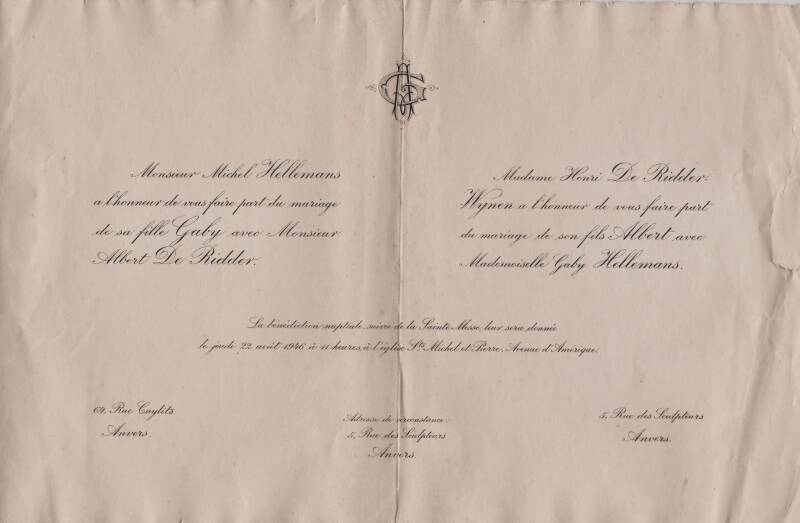 AG
Monsieur Michel Hellemans
a l'honneur de vous faire part du mariage
de sa fille Gaby avec Monsieur
Albert De Ridder.
Madame Henri De Ridder-
Wynen a l'honneur de vous faire part
du mariage de son fils Albert avec
Mademoiselle Gaby Hellemans.
La bénédiction nuptiale, suivie de la Sainte Messe, leur sera donnée
le jeudi 22 août 1946 à 11 heures, à l'église Sts Michel et Pierre, Avenue d'Amérique.
64, Rue Cuylits
Anvers.
Adresse de circonstance:
5, Rue des Sculpteurs
Anvers.
5, Rue des Sculpteurs
Anvers.